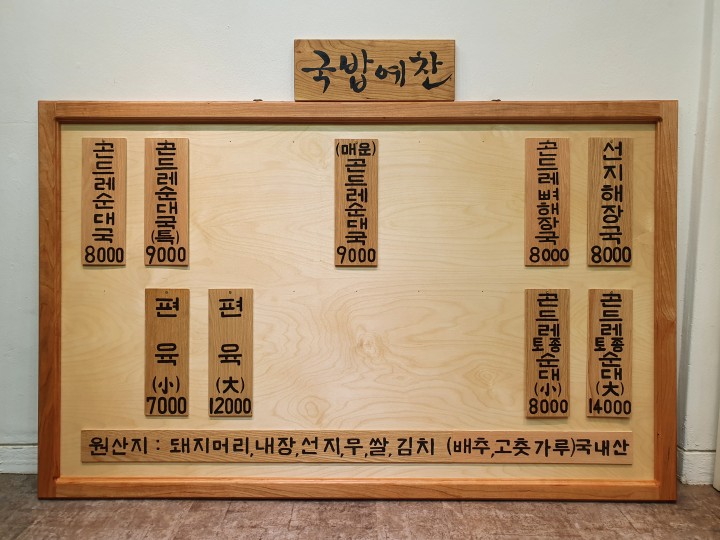 국밥예찬
곤드레순대국 8000
곤드레순대국(特) 9000
(매운)곤드레순대국 9000
곤드레뼈해장국 8000
선지해장국 8000
편육(小) 7000
편육(大) 12000
곤드레토종순대(小) 8000
곤드레토종순대(大) 14000
원산지 : 돼지머리,내장,선지,무,쌀,김치 (배추,고춧가루)국내산